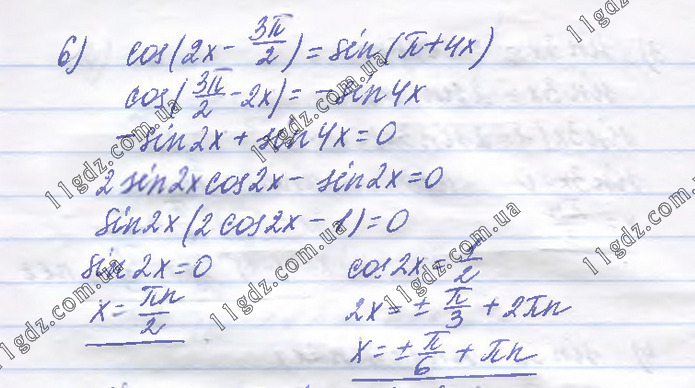 6) cos(2x - 3π/2) = sin(π + 4x)
cos(3π/2 - 2x) = - sin4x
- sin2x + sin4x = 0
2 sin2x cos2x - sin2x = 0
sin2x(2cos2x - 1) = 0
sin 2x = 0
x = πn/2
cos2x = 1/2
2x = ± π/3 + 2πn
x = ± π/6 + πn
11gdz.com.ua
11gdz.com.ua
11gdz.com.ua
11gdz.com.ua
11gdz.com.ua
11gdz.com.ua
11gdz.com.ua